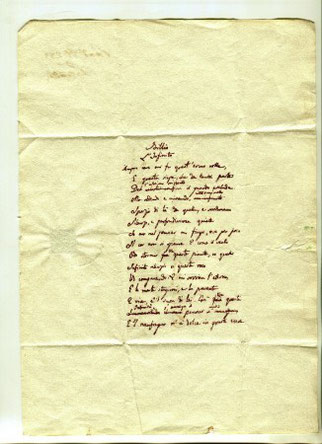 Idillio
L'Infinito
Sempre caro mi fu quest'ermo colle,
E questa siepe, che da tanta parte
il guardo esclude.
Ma sedendo e mirando, interminato
Spazio di là da quella, e sovrumani
Silenzi, e profondissima quiete
Io nel pensier mi fingo, ove per poco
Il cor non si spaura. E come il vento
Odo stormir tra queste piante, io quello
Infinito silenzio a questa voce
Vo comparando: E mi sovvien l'eterno,
E le morte stagioni, e la presente
E viva, e 'l suon di lei. Così questa
il pensier
E 'l naufragar m'è dolce in questo mare.